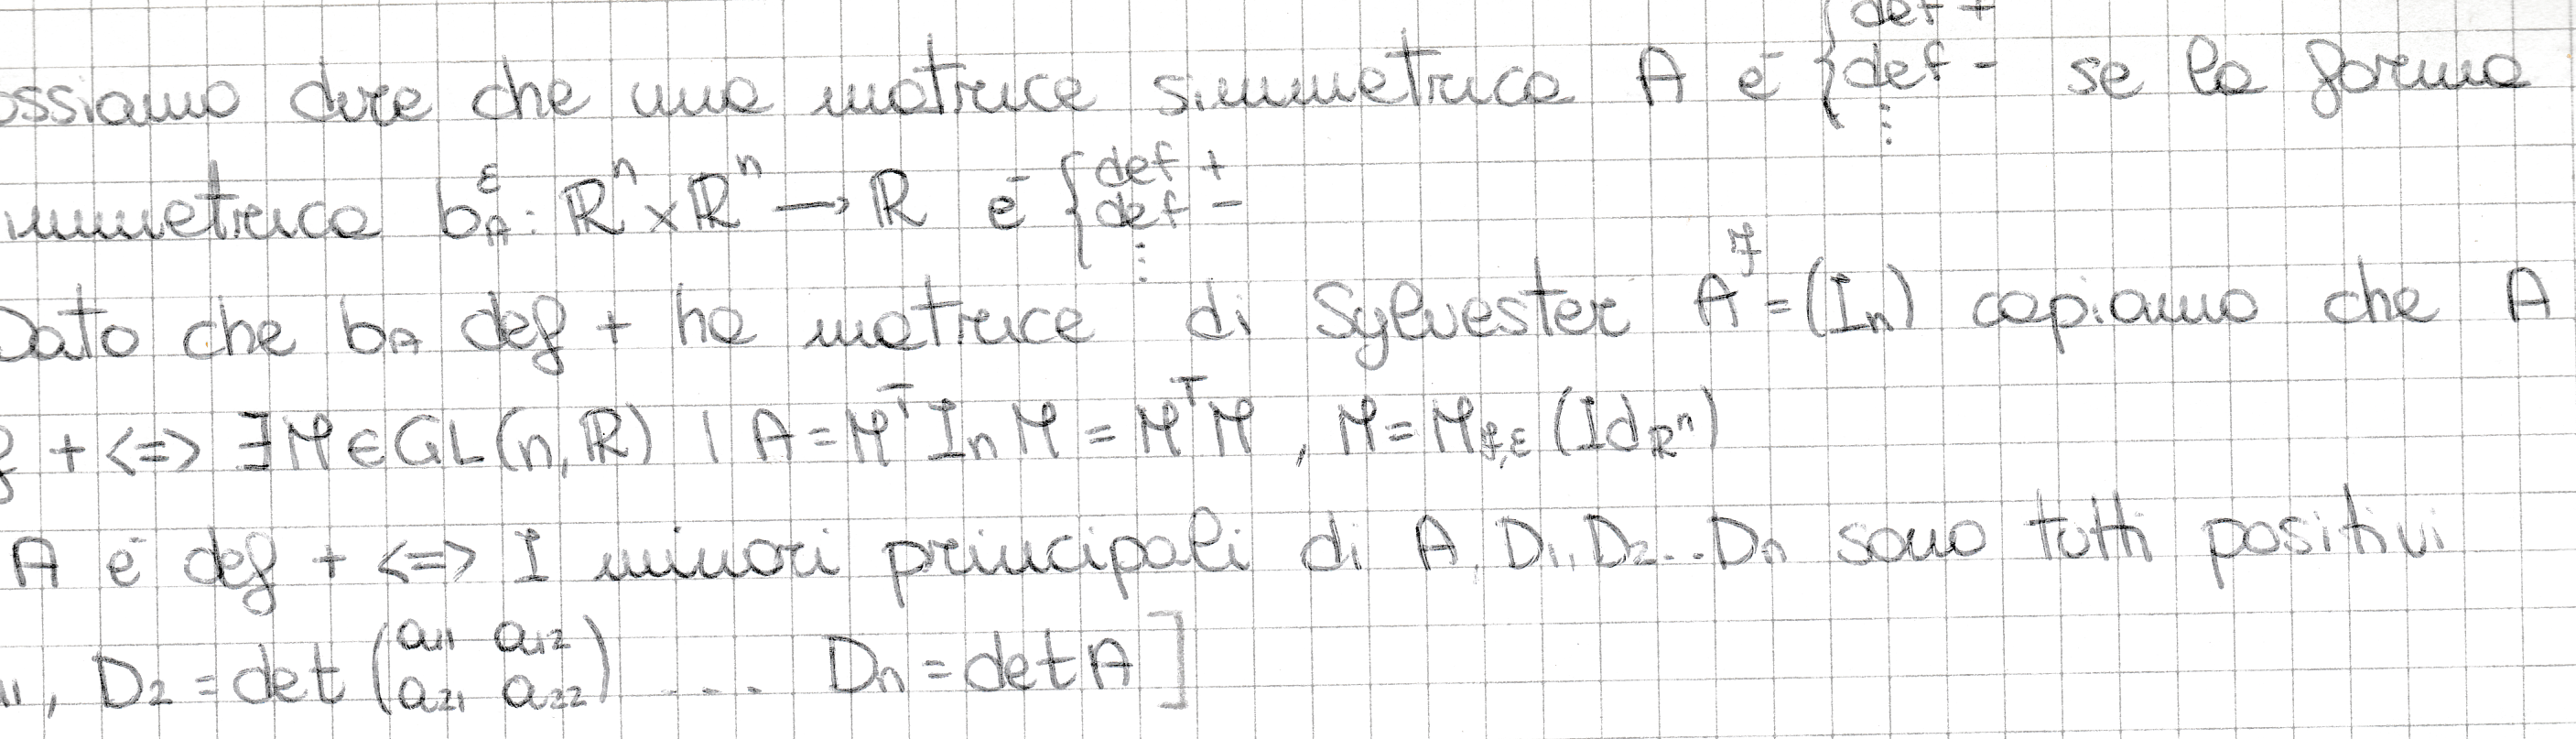 ossiamo dire che una matrice simmetrica A è { def + def - ⋮ se la forma
immetrica b_A^ε : ℝ^n × ℝ^n → ℝ è { def + def - ⋮
Dato che b_A def + ha matrice di Sylvester A^f = (I_n) capiamo che A
f + <=> ∃M ∈ GL(n, ℝ) | A = M^T I_n M = M^T M , M = M_f,ε (Id_ℝ^n)
A è def + <=> I minori principali di A, D_1, D_2 ... D_n sono tutti positivi
11 , D_2 = det (a_11 a_12 a_21 a_22) ... D_n = det A ]